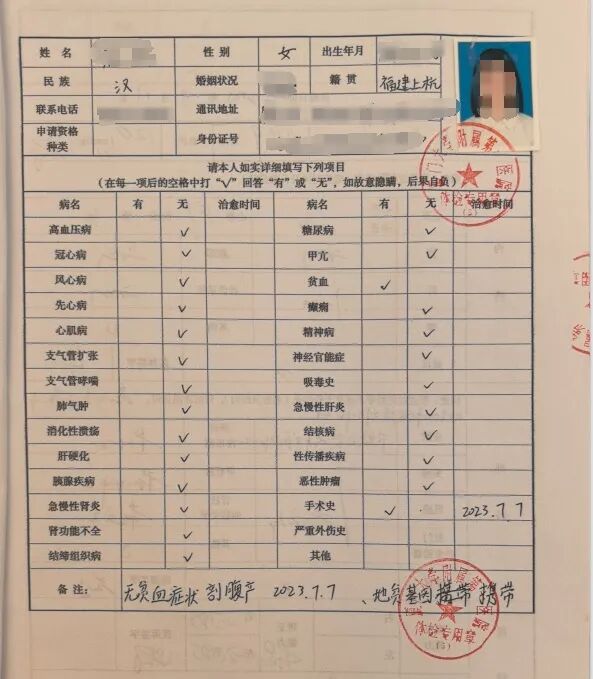 姓 名 性 别 女 出生年月
民 族 汉 婚姻状况 籍 贯 福建上杭
联系电话 通讯地址
申请资格种类 身份证号
请本人如实详细填写下列项目
(在每一项后的空格中打“√”回答“有”或“无”,如故意隐瞒,后果自负)
病名 有 无 治愈时间 病名 有 无 治愈时间
高血压病 ✓ 糖尿病 ✓
冠心病 ✓ 甲亢 ✓
风心病 ✓ 贫血 ✓
先心病 ✓ 癫痫 ✓
心肌病 ✓ 精神病 ✓
支气管扩张 ✓ 神经官能症 ✓
支气管哮喘 ✓ 吸毒史 ✓
肺气肿 ✓ 急慢性肝炎 ✓
消化性溃疡 ✓ 结核病 ✓
肝硬化 ✓ 性传播疾病 ✓
胰腺疾病 ✓ 恶性肿瘤 ✓
急慢性肾炎 ✓ 手术史 ✓ 2023.7.7
肾功能不全 ✓ 严重外伤史
结缔组织病 ✓ 其他
备 注: 无贫血症状 剖腹产 2023.7.7 、地贫基因携带 携带
体检专用章
体检专用章